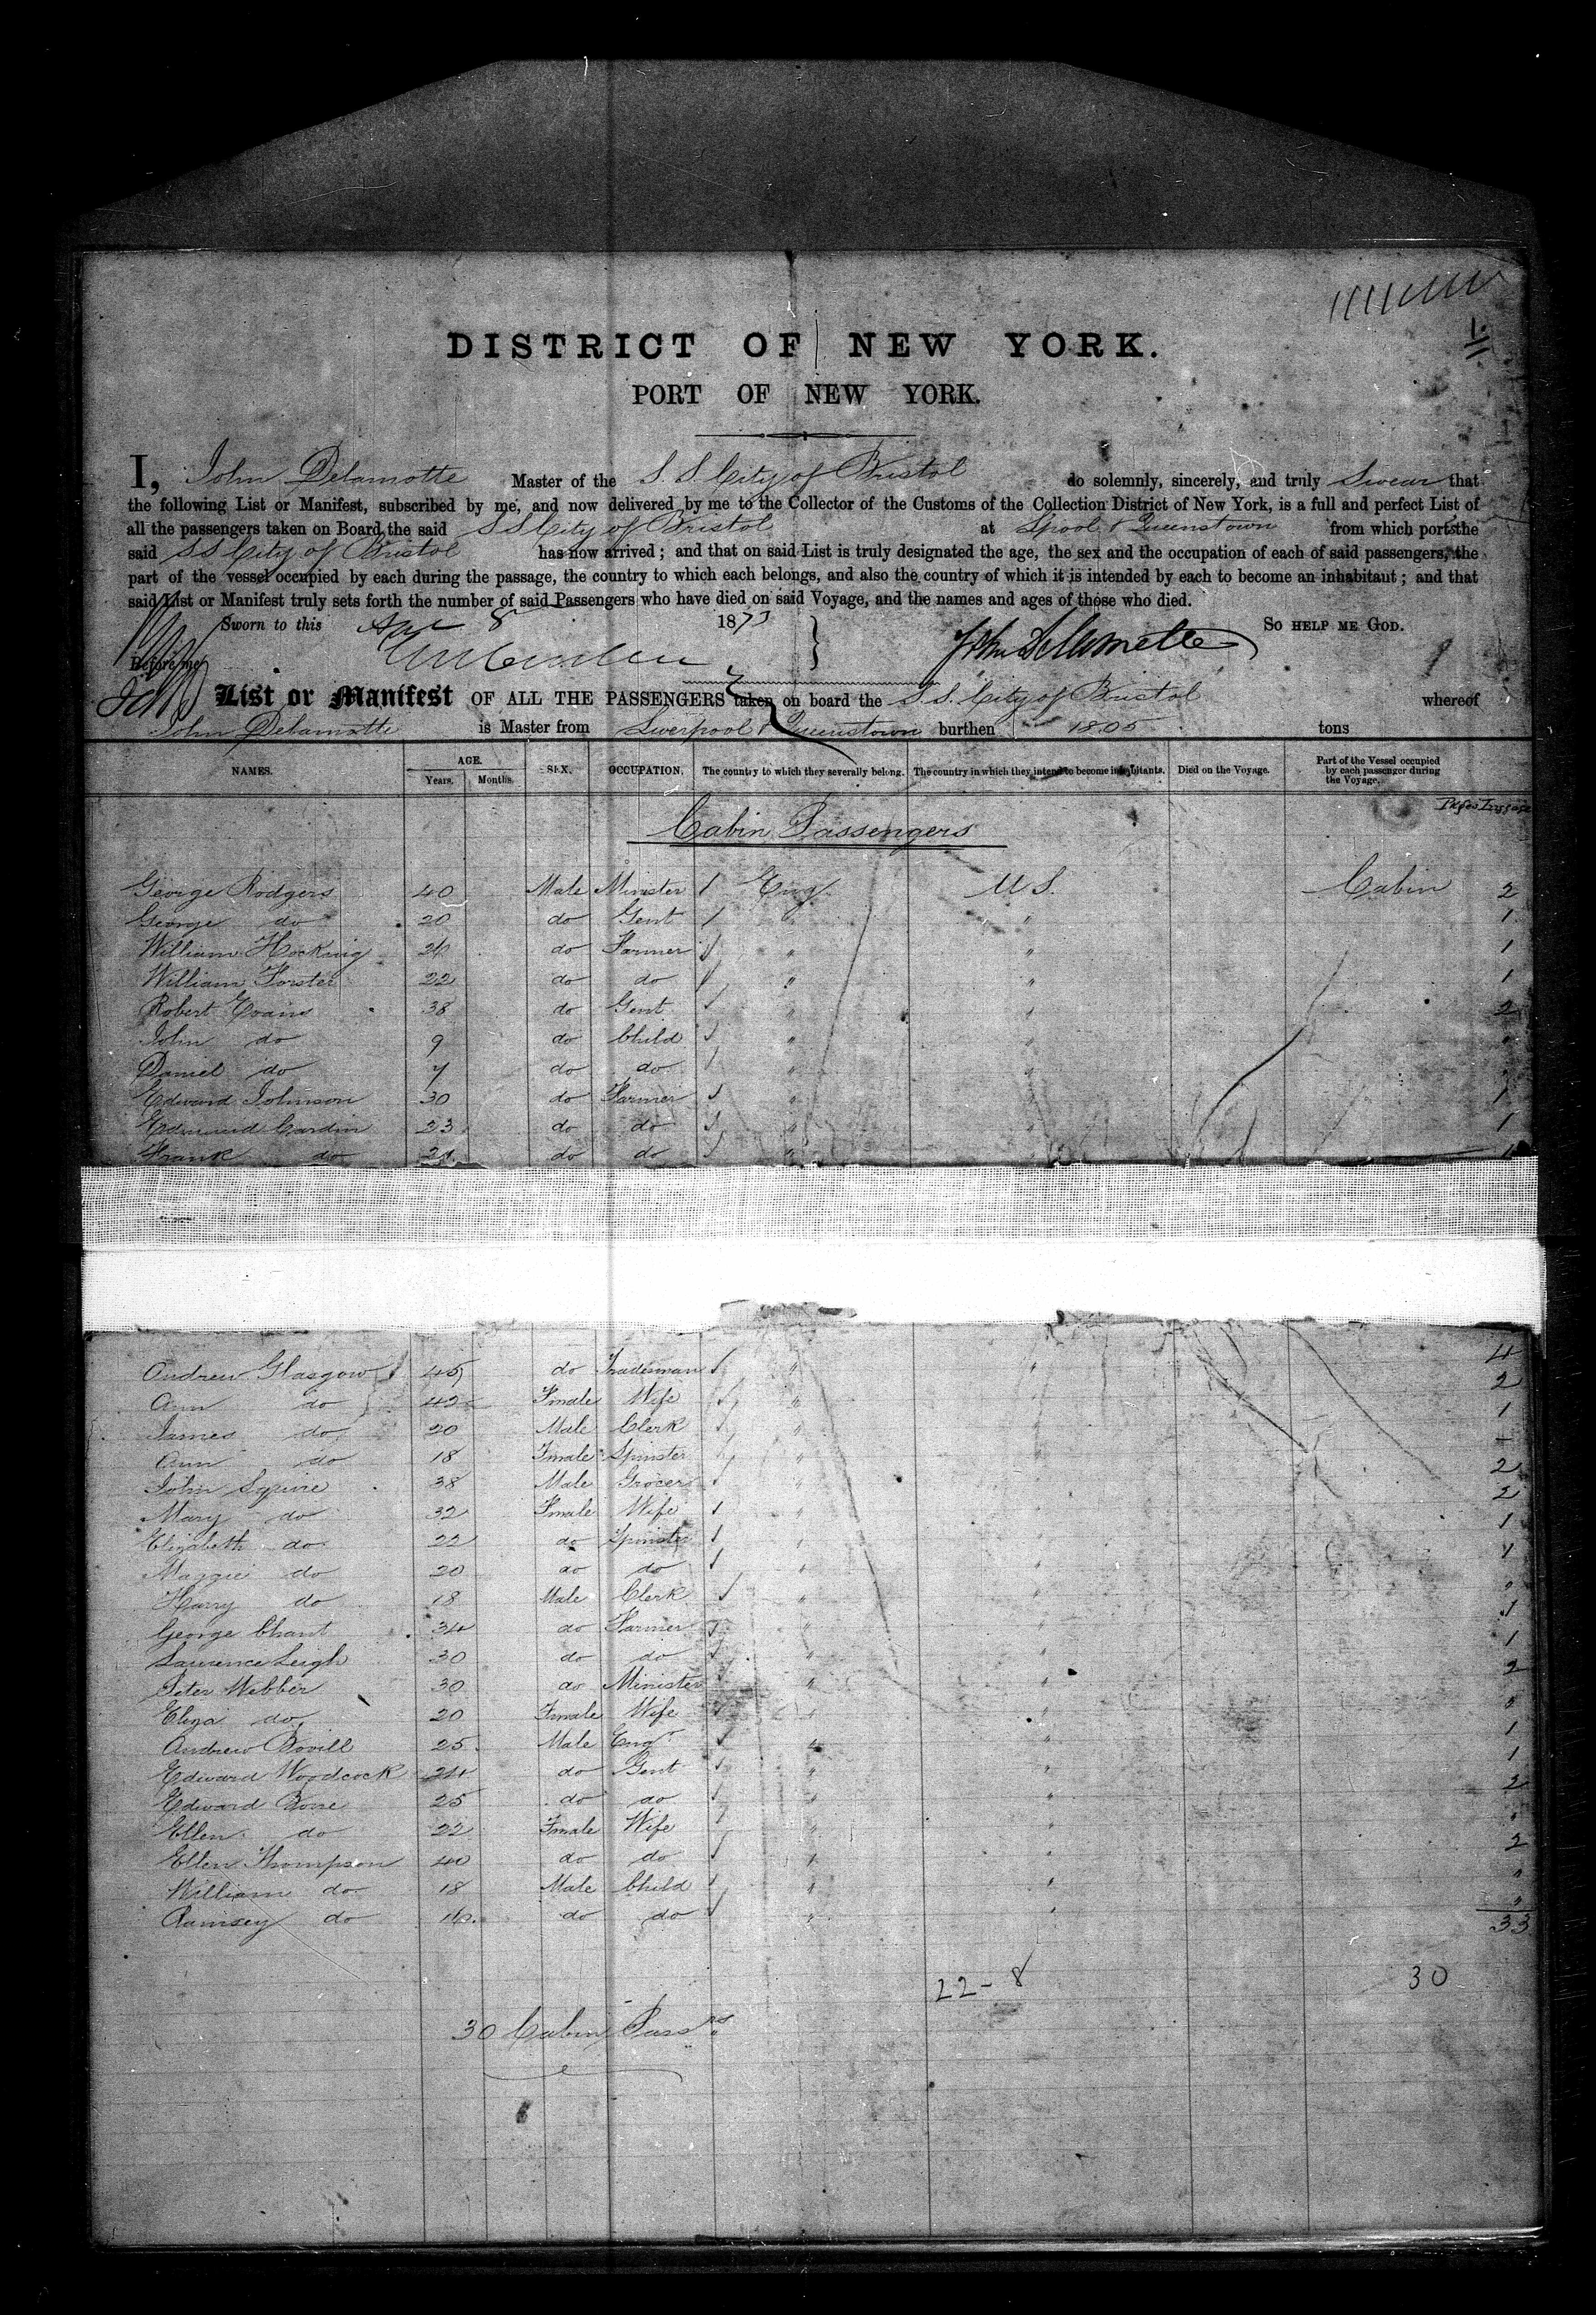 1.
DISTRICT OF NEW YORK.
PORT OF NEW YORK.
I, John Delamotte Master of the S.S. City of Bristol do solemnly, sincerely, and truly Swear that
the following List or Manifest, subscribed by me, and now delivered by me to the Collector of the Customs of the Collection District of New York, is a full and perfect List of
all the passengers taken on Board the said SS City of Bristol at Lpool & Queenstown from which ports the
said SS City of Bristol has now arrived; and that on said List is truly designated the age, the sex and the occupation of each of said passengers, the
part of the vessel occupied by each during the passage, the country to which each belongs, and also the country of which it is intended by each to become an inhabitant; and that
said List or Manifest truly sets forth the number of said Passengers who have died on said Voyage, and the names and ages of those who died.
Sworn to this Apr 8 1873 So help me God.
Before me John Delamotte
List or Manifest OF ALL THE PASSENGERS taken on board the S.S. City of Bristol whereof
John Delamotte is Master from Liverpool & Queenstown burthen 1805 tons
NAMES. AGE. Years. Months. SEX. OCCUPATION. The country to which they severally belong. The country in which they intend to become inhabitants. Died on the Voyage. Part of the Vessel occupied by each passenger during the Voyage.
Cabin Passengers
George Rodgers 40 Male Minister Eng. U S. Cabin 2
George do 20 do Gent " " 1
William Hocking 24 do Farmer " " 1
William Forster 22 do do " " 1
Robert Evans 38 do Gent " " 2
John do 9 do Child " " "
Daniel do 7 do do " " "
Edward Johnson 30 do Farmer " " 1
Edmund Cardin 23 do do " " 1
Frank do 21 do do " 1
Andrew Glasgow 45 do Tradesman " " 4
Ann do 42 Female Wife " 2
James do 20 Male Clerk " 1
Ann do 18 Female Spinster " -
John Squire 38 Male Grocer " 2
Mary do 32 Female Wife " 2
Elizabeth do 22 do Spinster " 1
Maggie do 20 do do " " 1
Harry do 18 Male Clerk " " "
George Chant 34 do Farmer " " 1
Laurence Leigh 30 do do " " 1
Peter Webber 30 do Minister " " 2
Eliza do 20 Female Wife " " "
Andrew Bovill 25 Male Engr " " 1
Edward Woodcock 24 do Gent " " 1
Edward 25 do do " " 2
Ellen do 22 Female Wife " " "
Ellen Thompson 40 do do " " 2
William do 18 Male Child " " "
Ramsey do 16 do do " " "
33
22 - 8 30
30 Cabin Pass